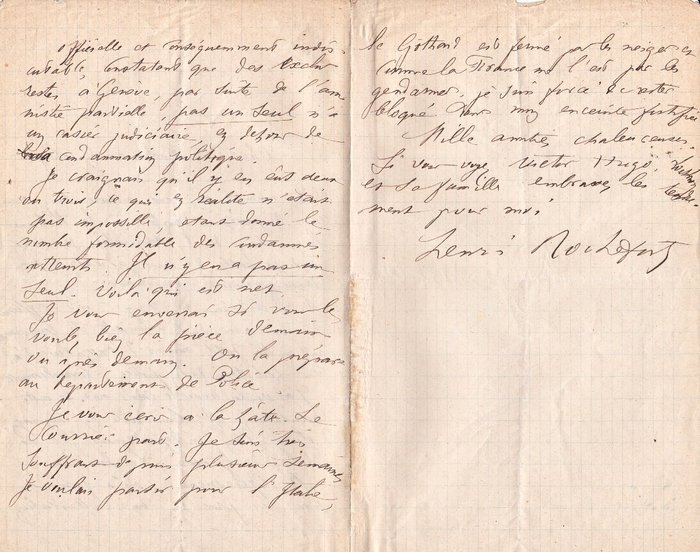 officielle et conséquemment indis-
cutable, constatant que des exclus
restés à Genève, par suite de l'am
nistie partielle, pas un seul n'a
un casier judiciaire, en dehors de
la condamnation politique.
Je craignais qu'il y en eût deux
ou trois, ce qui en réalité n'était
pas impossible, étant donné le
nombre formidable des condamnés
atteints. Il n'y en a pas un
seul. Voilà qui est net.
Je vous enverrai si vous le
voulez bien la pièce demain
ou après demain. On la prépare
au département de Police.
Je vous écris à la hâte. Le
Courrier part. Je suis très
souffrant depuis plusieurs semaines
Je voulais partir pour l'Italie,
le Gothard est fermé par les neiges et
comme la France me l'est par les
gendarmes, je suis forcé de rester
bloqué dans mon enceinte fortifiée
Mille amitiés chaleureuses.
Si vous voyez Victor Hugo
et sa famille embrassez les
ment pour moi.
Henri Rochefort